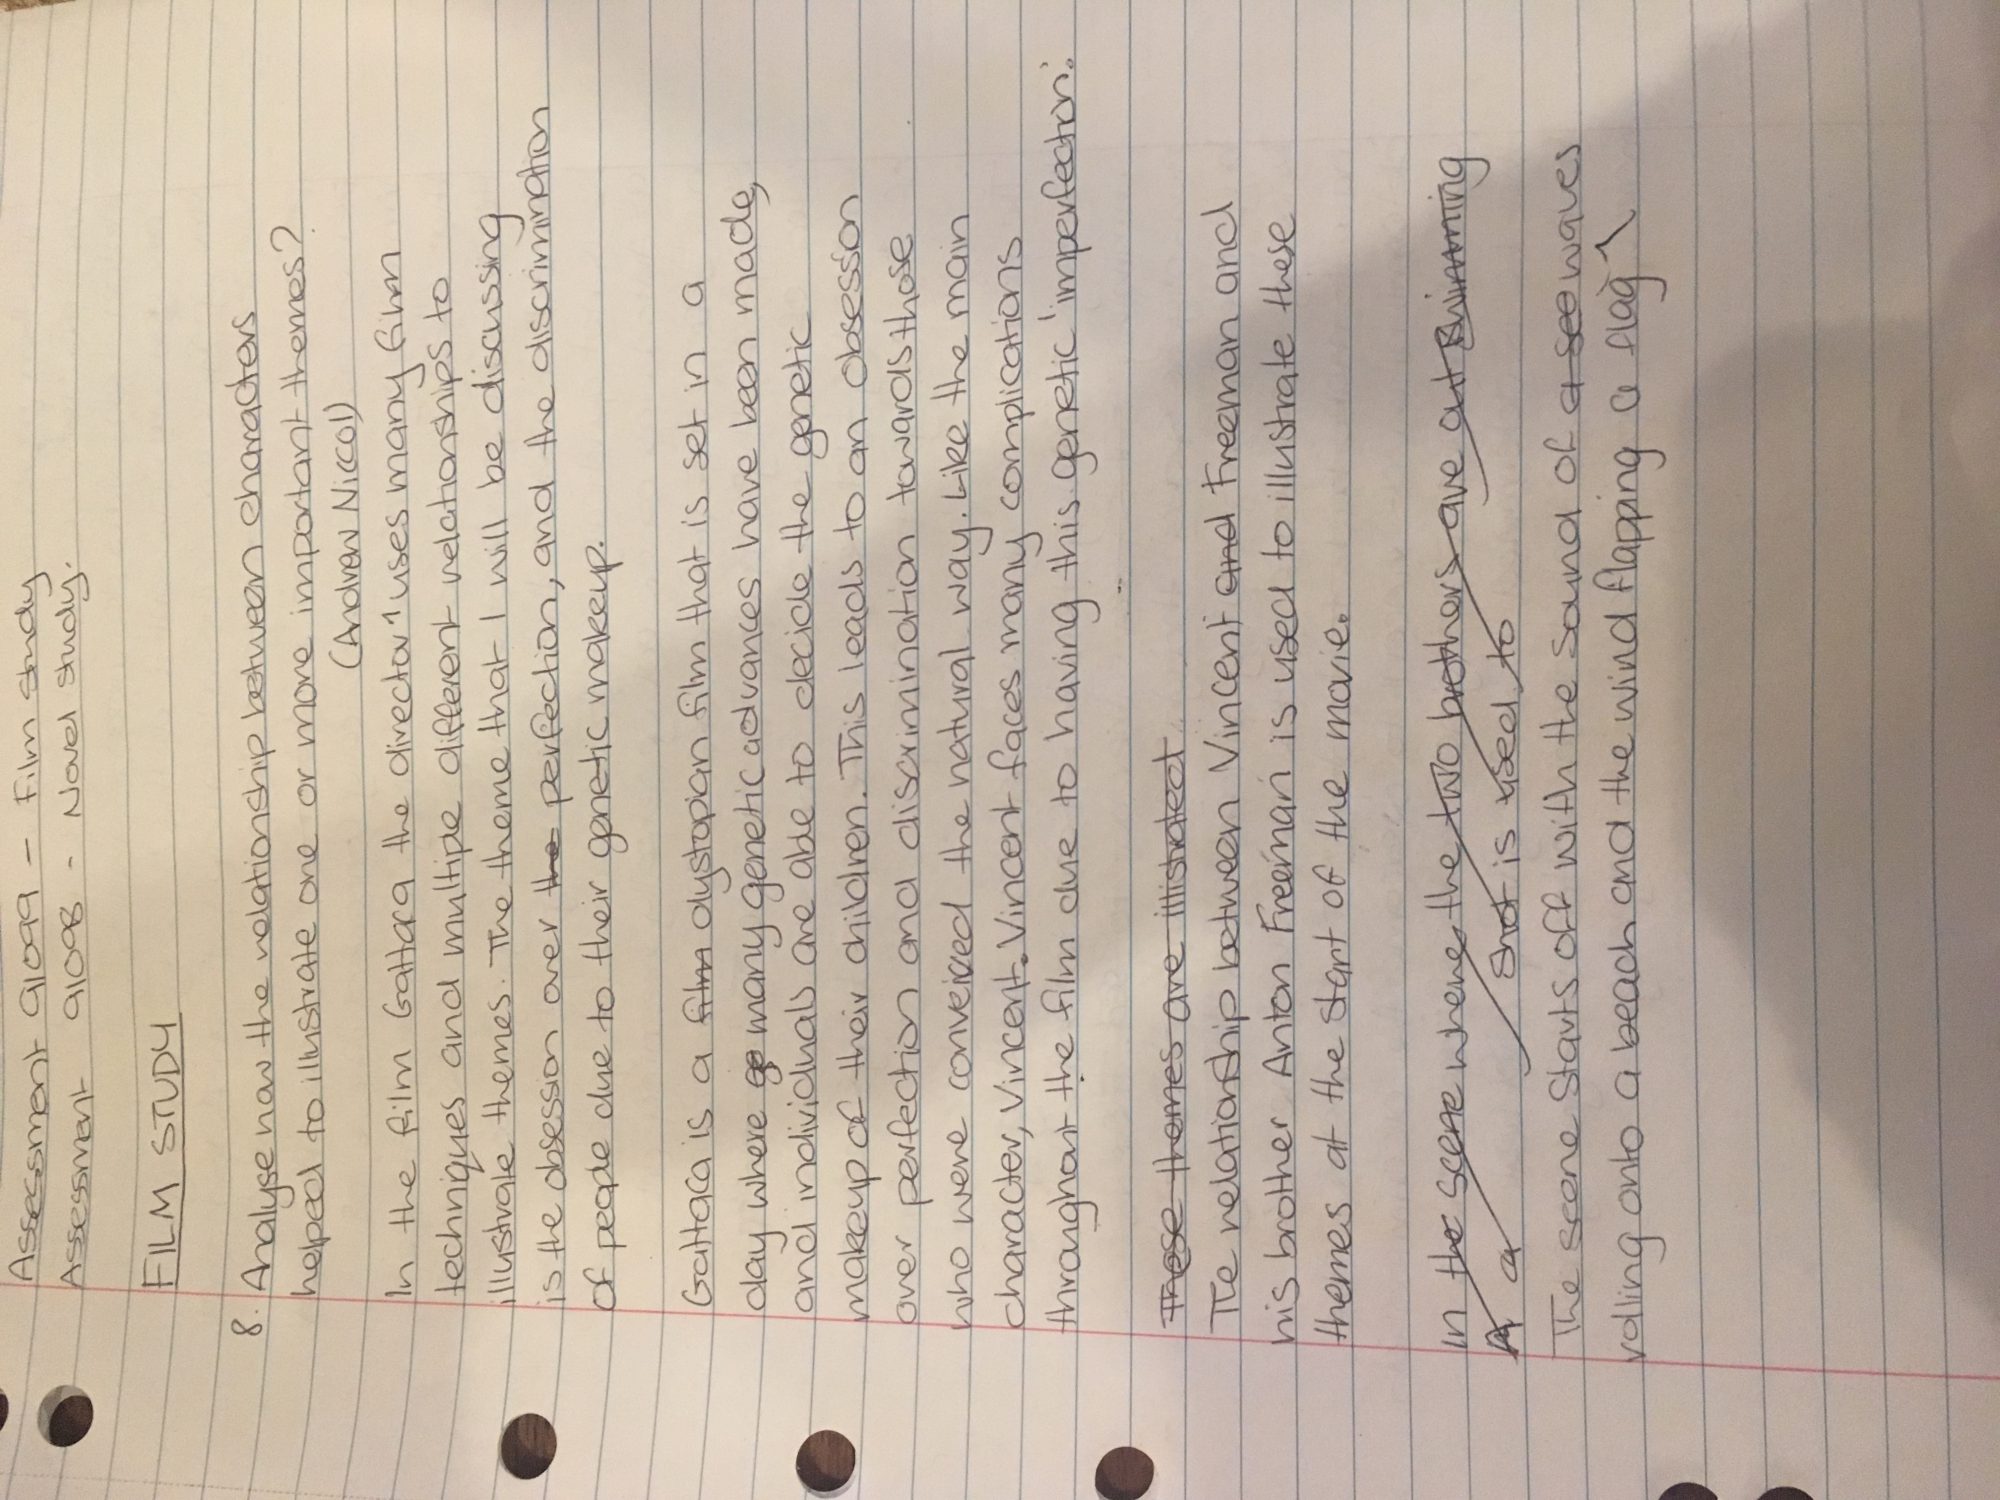 Assessment 91099 - Film study
Assessment 91098 - Novel study.
FILM STUDY
8. Analyse how the relationship between characters
helped to illustrate one or more important themes?
(Andrew Niccol)
In the film Gattaca the director ^ uses many film
techniques and multiple different relationships to
illustrate themes. The theme that I will be discussing
is the obsession over the perfection, and the discrimination
of people due to their genetic makeup.
Gattaca is a film dystopian film that is set in a
day where go many genetic advances have been made,
and individuals are able to decide the genetic
makeup of their children. This leads to an obsession
over perfection and discrimination towards those
who were conveived the natural way. Like the main
character, Vincent. Vincent faces many complications
throughout the film due to having this genetic 'imperfection'.
These themes are illistrated
The relationship between Vincent and Freeman and
his brother Anton Freeman is used to illustrate these
themes at the start of the movie.
In the scene where the two brothers ave out swimming
A a shot is used to
The scene starts off with the sound of a see waves
rolling onto a beach and the wind flapping a flag